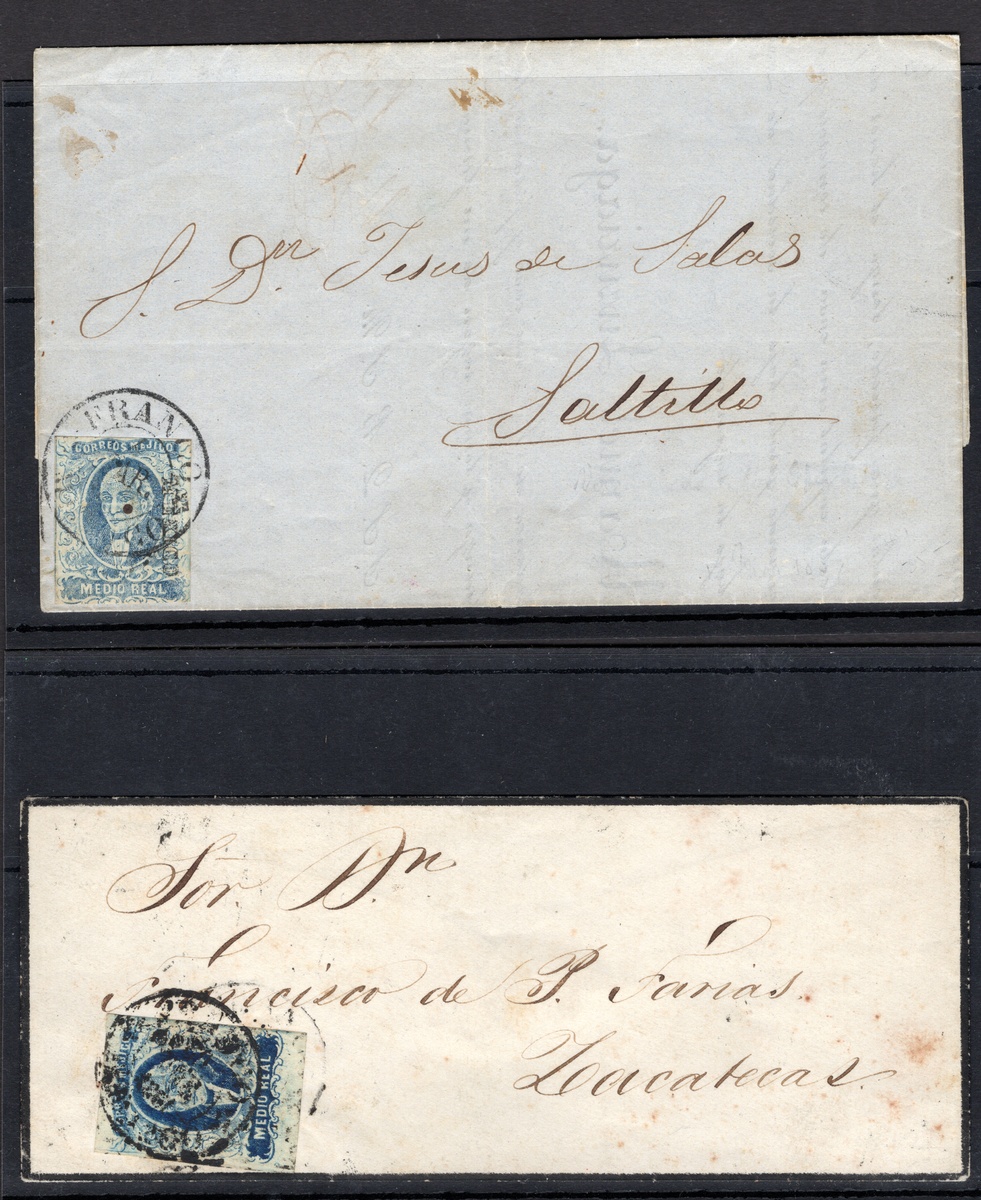 S. Dn. Jesus de Salas
Saltillo
FRANCO
CORREOS MEJICO
MEDIO REAL
Sor. Dn
Francisco de P. Farias.
Zacatecas.
MEDIO REAL